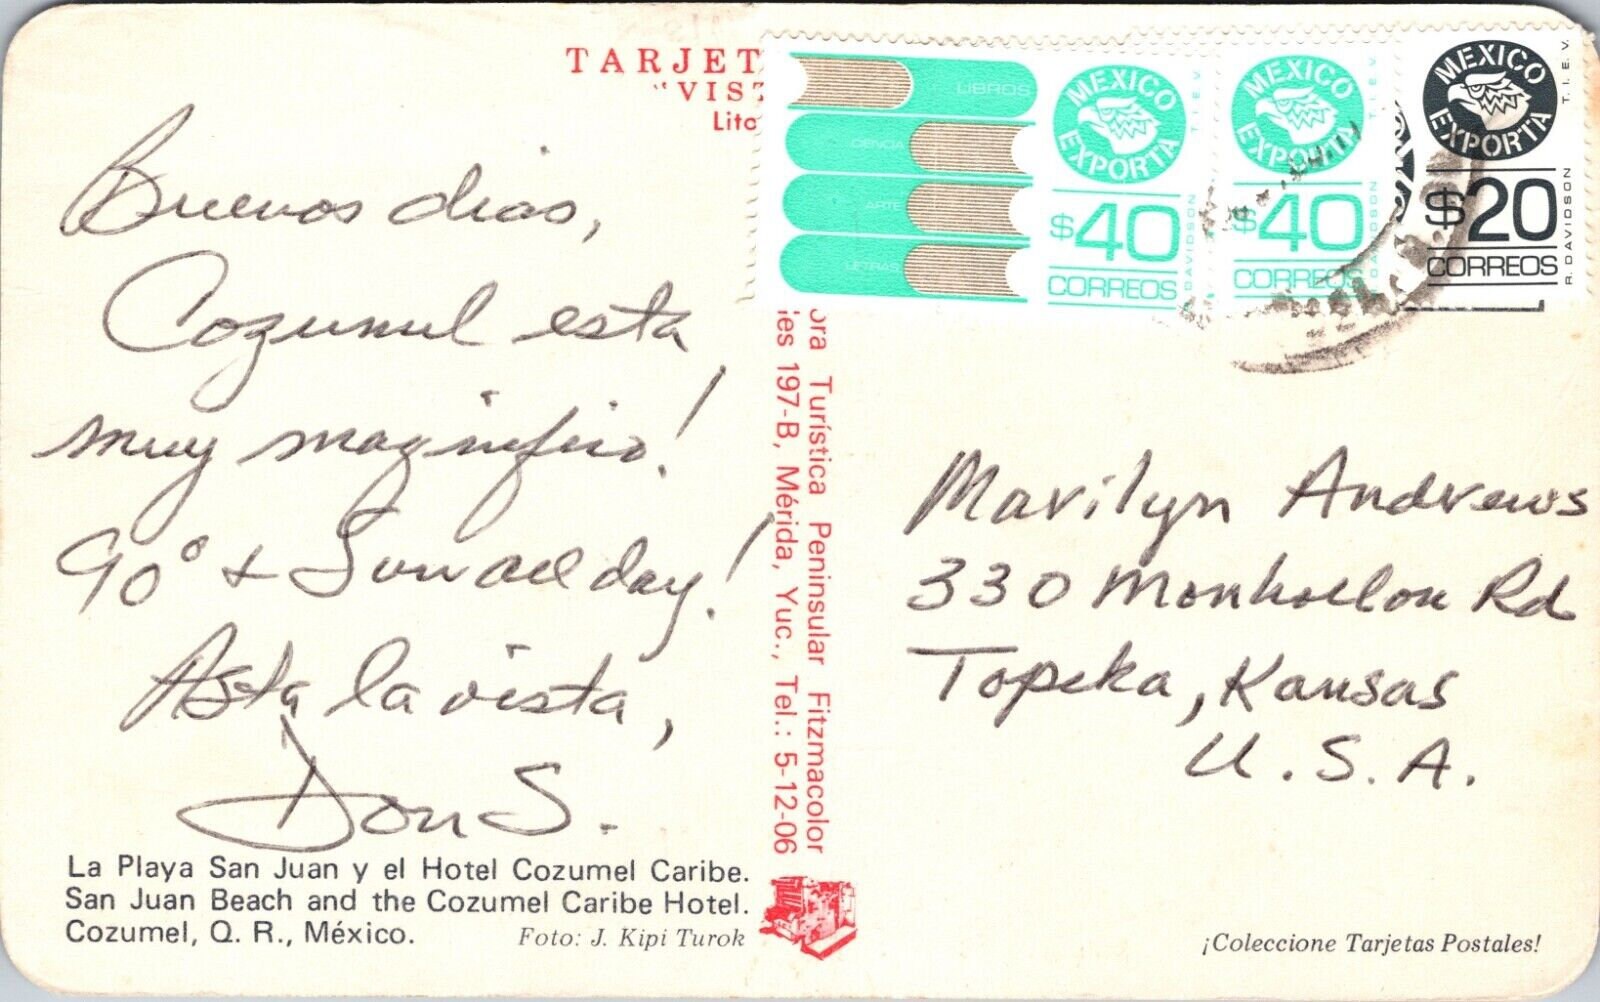 TARJET
"VIST
Lito
Buenos dias,
Cozumul esta
muy magnifico!
90° & Sun all day!
Asta la vista,
Don S.
La Playa San Juan y el Hotel Cozumel Caribe.
San Juan Beach and the Cozumel Caribe Hotel.
Cozumel, Q. R., México.
Foto: J. Kipi Turok
ora Turística Peninsular Fitzmacolor
ies 197-B, Mérida, Yuc., Tel.: 5-12-06
LIBROS
CIENCIA
ARTE
LETRAS
MEXICO EXPORTA
$40
CORREOS
T.I.E.V.
R. DAVIDSON
MEXICO EXPORTA
$40
CORREOS
T.I.E.V.
DAVIDSON
MEXICO EXPORTA
$20
CORREOS
T.I.E.V.
R. DAVIDSON
Marilyn Andrews
330 Monhollon Rd
Topeka, Kansas
U.S.A.
¡Coleccione Tarjetas Postales!